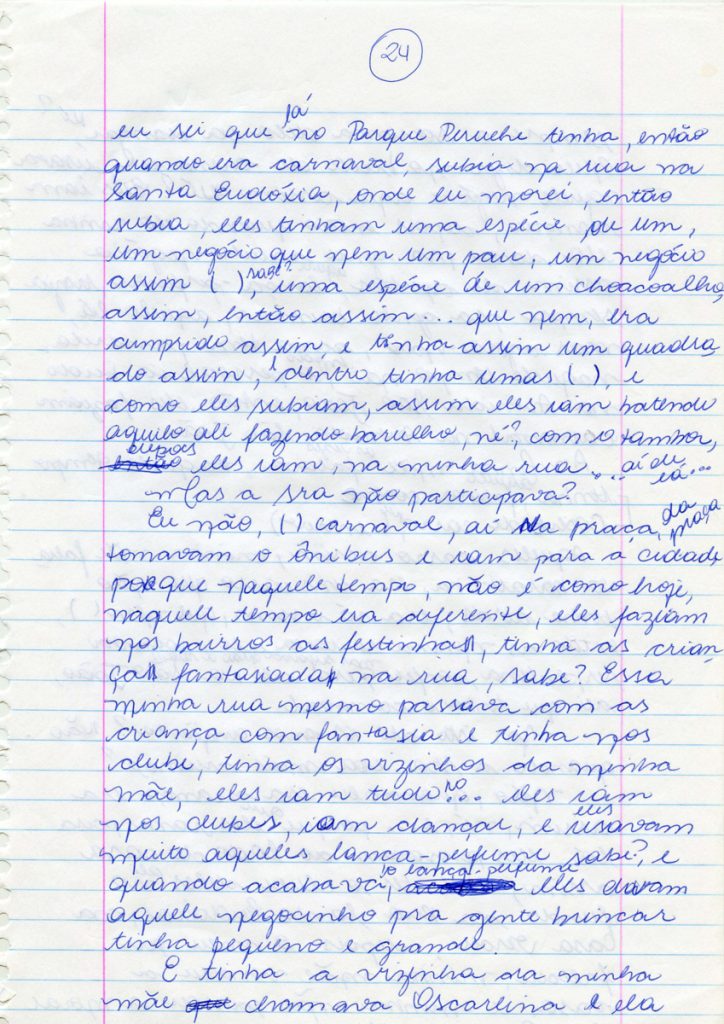 24
eu sei que lá no Parque Peruche tinha, então
quando era carnaval, subia na rua na
Santa Eudóxia, onde eu morei, então
subia, eles tinham uma espécie de um,
um negócio que nem um pau, um negócio
assim ( ), sabe? uma espécie de um choacoalho,
assim, então assim... que nem, era
cumprido assim e tinha assim um quadra
do assim, e dentro tinha umas ( ), e
como eles subiam, assim eles iam batendo
aquilo ali fazendo barulho, né?, com o tambor,
então depois eles iam, na minha rua... aí de lá...
Mas a sra não participava?
Eu não, ( ) carnaval, aí na praça, da praça
tomavam o ônibus e iam para a cidade
porque naquele tempo, não é como hoje,
naquele tempo era diferente, eles faziam
nos bairros as festinha, tinha as crian
ça fantasiada na rua, sabe? Essa
minha rua mesmo passava com as
criança com fantasia e tinha nos
clube, tinha os vizinhos da minha
mãe, eles iam tudo no... eles iam
nos clubes, iam dançar, e eles usavam
muito aqueles lança-perfume sabe?, e
quando acabava, o lança-perfume eles davam
aquele negocinho pra gente brincar
tinha pequeno e grande.
E tinha a vizinha da minha
mãe que chamava Oscarlina e ela